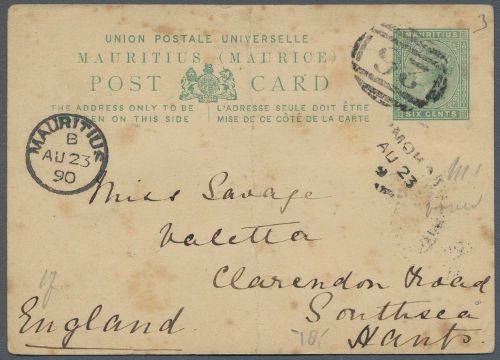 3
UNION POSTALE UNIVERSELLE
MAURITIUS (MAURICE)
POST CARD
THE ADDRESS ONLY TO BE L'ADRESSE SEULE DOIT ÊTRE
ON THIS SIDE MISE DE CE CÔTÉ DE LA CARTE
MAURITIUS
SIX CENTS
MAURITIUS
B
AU 23
90
AU 23
Miss Savage
Valetta
Clarendon Road
Southsea
Hants.
England.